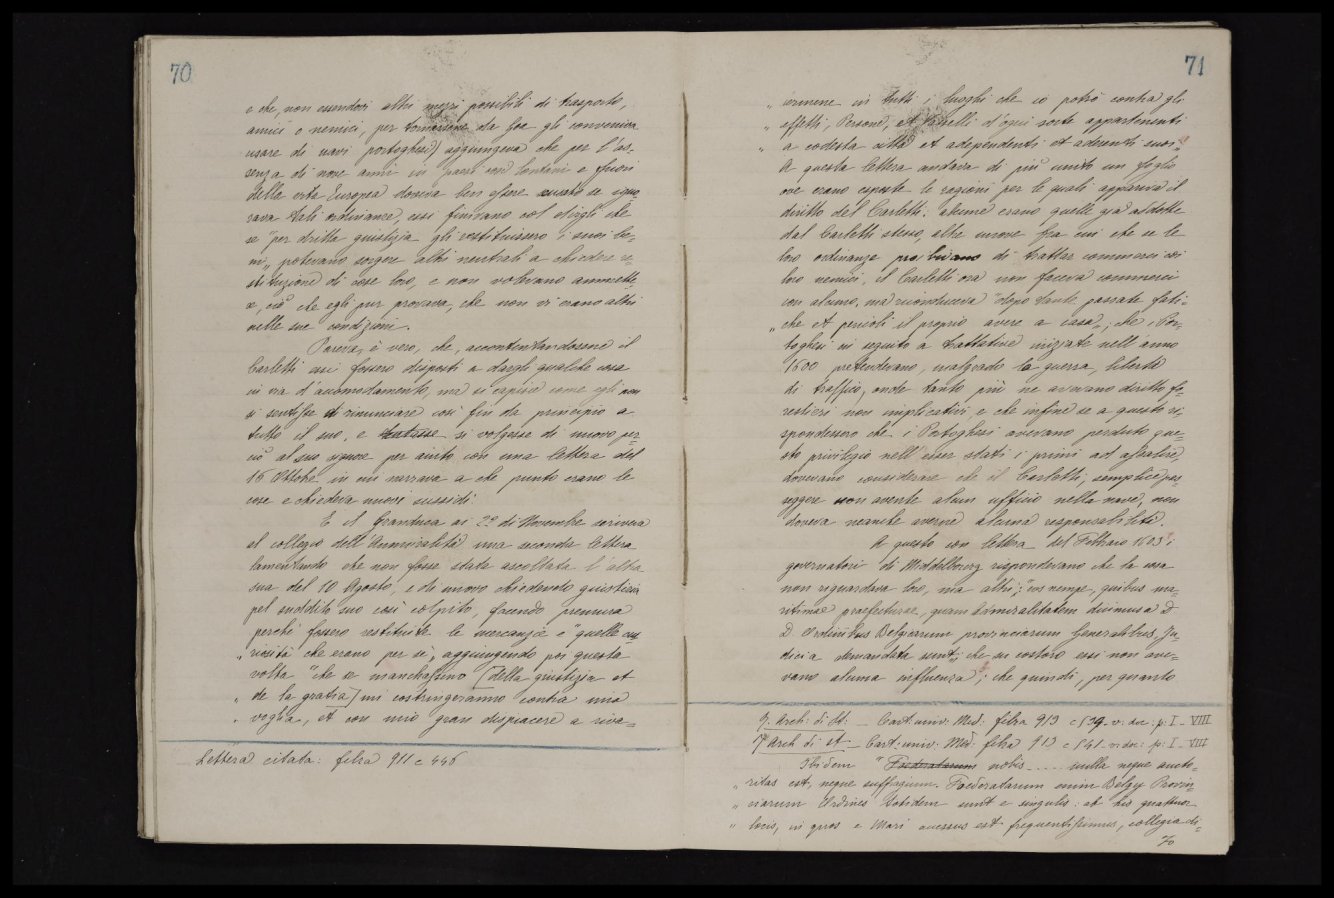 70
e che, non essendovi altri mezzi possibili di trasporto,
amici o nemici, per tornarsene da Goa gli conveniva
usare di navi portoghesi) aggiungeva che per l'as-
senza di nove anni in paesi così lontani e fuori
della vita Europea doveva ben essere scusato se igno-
rava tali ordinanze, essi finivano col dirgli che
se "per dritta giustizia gli restituissero i suoi be-
ni„ potevano sorgere altri neutrali a chiedere re-
stituzione di cose loro, e non volevano ammette-
re, ciò che egli pur provava, che non vi erano altri
nelle sue condizioni.
Pareva, è vero, che, accontentandosene il
Carletti essi fossero disposti a dargli qualche cosa
in via d'accomodamento, ma si capisce come egli non
si sentisse di rinunciare così fin da principio a
tutto il suo, e si volgesse di nuovo per-
ciò al suo signore per aiuto con una lettera del
16 Ottobre in cui narrava a che punto erano le
cose e chiedeva nuovi sussidi.
E il Granduca ai 29 di Novembre scriveva
al collegio dell'Ammiralità una seconda lettera
lamentando che non fosse stata ascoltata l'altra
sua del 10 Agosto, e di nuovo chiedendo giustizia
pel suddito suo così colpito, facendo premura
perchè fossero restituite le mercanzie e "quelle cu-
„ riosità che erano per sè„ aggiungendo poi questa
volta "che se manchassino [della giustizia et
„ de la gratia] mi costringeranno contra mia
„ voglia, et con mio gran dispiacere a riva-
Lettera citata: filza 911 c 446
71
„ lermene in tutti i luoghi che io potrò contra gli
„ effetti, Persone, et Vasselli d'ogni sorte appartenenti
„ a codesta città et adependenti et aderenti suoi„
A questa lettera andava di più unito un foglio
ove erano esposte le ragioni per le quali appariva il
diritto del Carletti: alcune erano quelle già addotte
dal Carletti stesso, altre nuove fra cui che se le
loro ordinanze proibivano di trattar commerci coi
loro nemici, il Carletti ora non faceva commerci
con alcuno, ma riconduceva "dopo tante passate fati-
„ che et pericoli il proprio avere a casa„; che i Por-
toghesi in seguito a trattative iniziate nell'anno
1600 pretendevano, malgrado la guerra, libertà
di traffico, onde tanto più ne avevano diritto fo-
restieri non implicativi e che infine se a questo ri-
spondessero che i Portoghesi avevano perduto que-
sto privilegio nell'esser stati i primi ad assalire,
dovevano considerare che il Carletti, semplice pas-
seggere non avente alcun ufficio nella nave, non
doveva neanche averne alcuna responsabilità.
A questo con lettera del Febbraio 1603 i
governatori di Middelbourg rispondevano che la cosa
non riguardava loro, ma altri; "eos nempe, quibus ma-
ritimae praefecturae, quam Admiralitatem dicimus a D
D. Ordinibus Belgicarum provinciarum Generalibus, Ju-
dicia demandata sunt„ che su costoro essi non ave-
vano alcuna influenza; che quindi, per quanto
Arch: di St: _ Cart: univ: Med: filza 913 c 139. v: doc: p: I - VIII
Arch di St _ Cart: univ: Med: filza 913 c 141 v: doc: p: I - VIII
Ibidem " Foederatarum nobis ..... nulla neque aucto-
„ ritas est, neque suffragium. Foederatarum enim Belgy Provin-
„ ciarum Ordines totidem sunt e singulis: at his quattuor
„ locis, in quos e Mari accessus est frequentissimus, collegia di-